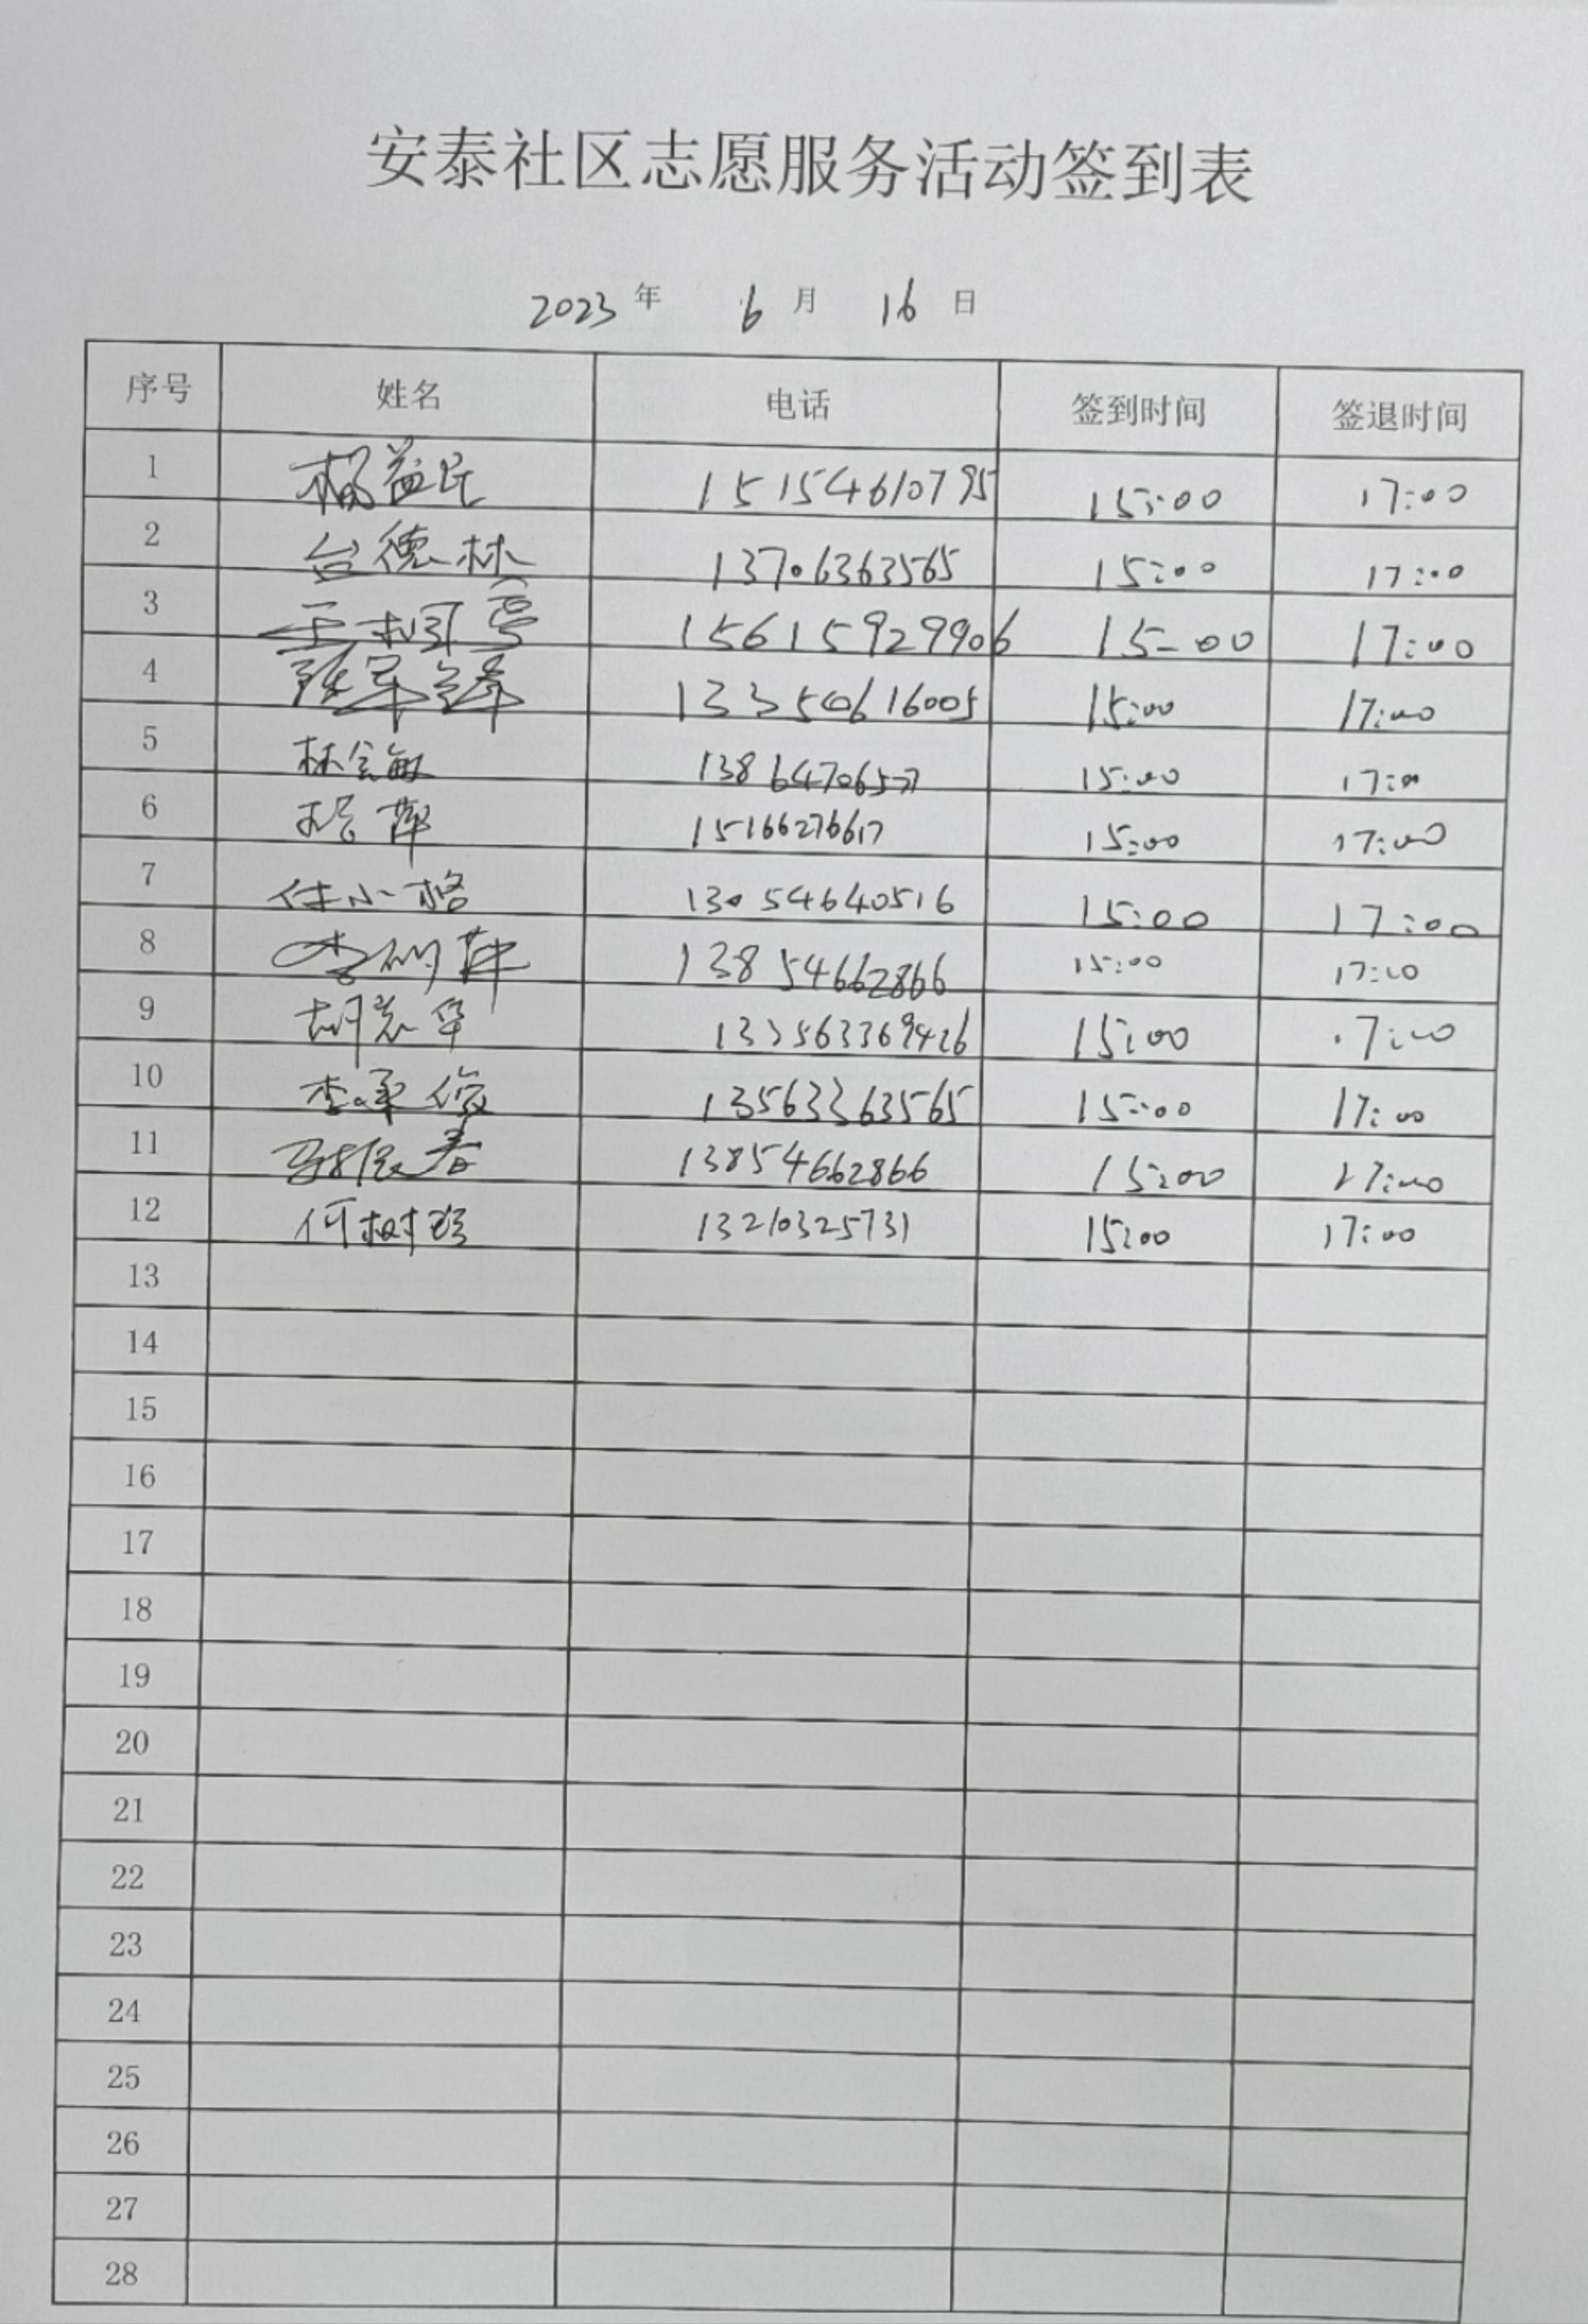 安泰社区志愿服务活动签到表
2023 年 6 月 16 日
序号 姓名 电话 签到时间 签退时间
1 杨益民 15154610795 15:00 17:00
2 台德林 13706363565 15:00 17:00
3 15615929906 15:00 17:00
4 13350616005 15:00 17:00
5 林会敏 13864706577 15:00 17:00
6 15166276617 15:00 17:00
7 任小格 13054640516 15:00 17:00
8 13854662866 15:00 17:00
9 胡兰华 133563369426 15:00 17:00
10 13563363565 15:00 17:00
11 马振春 13854662866 15:00 17:00
12 13210325731 15:00 17:00
13
14
15
16
17
18
19
20
21
22
23
24
25
26
27
28